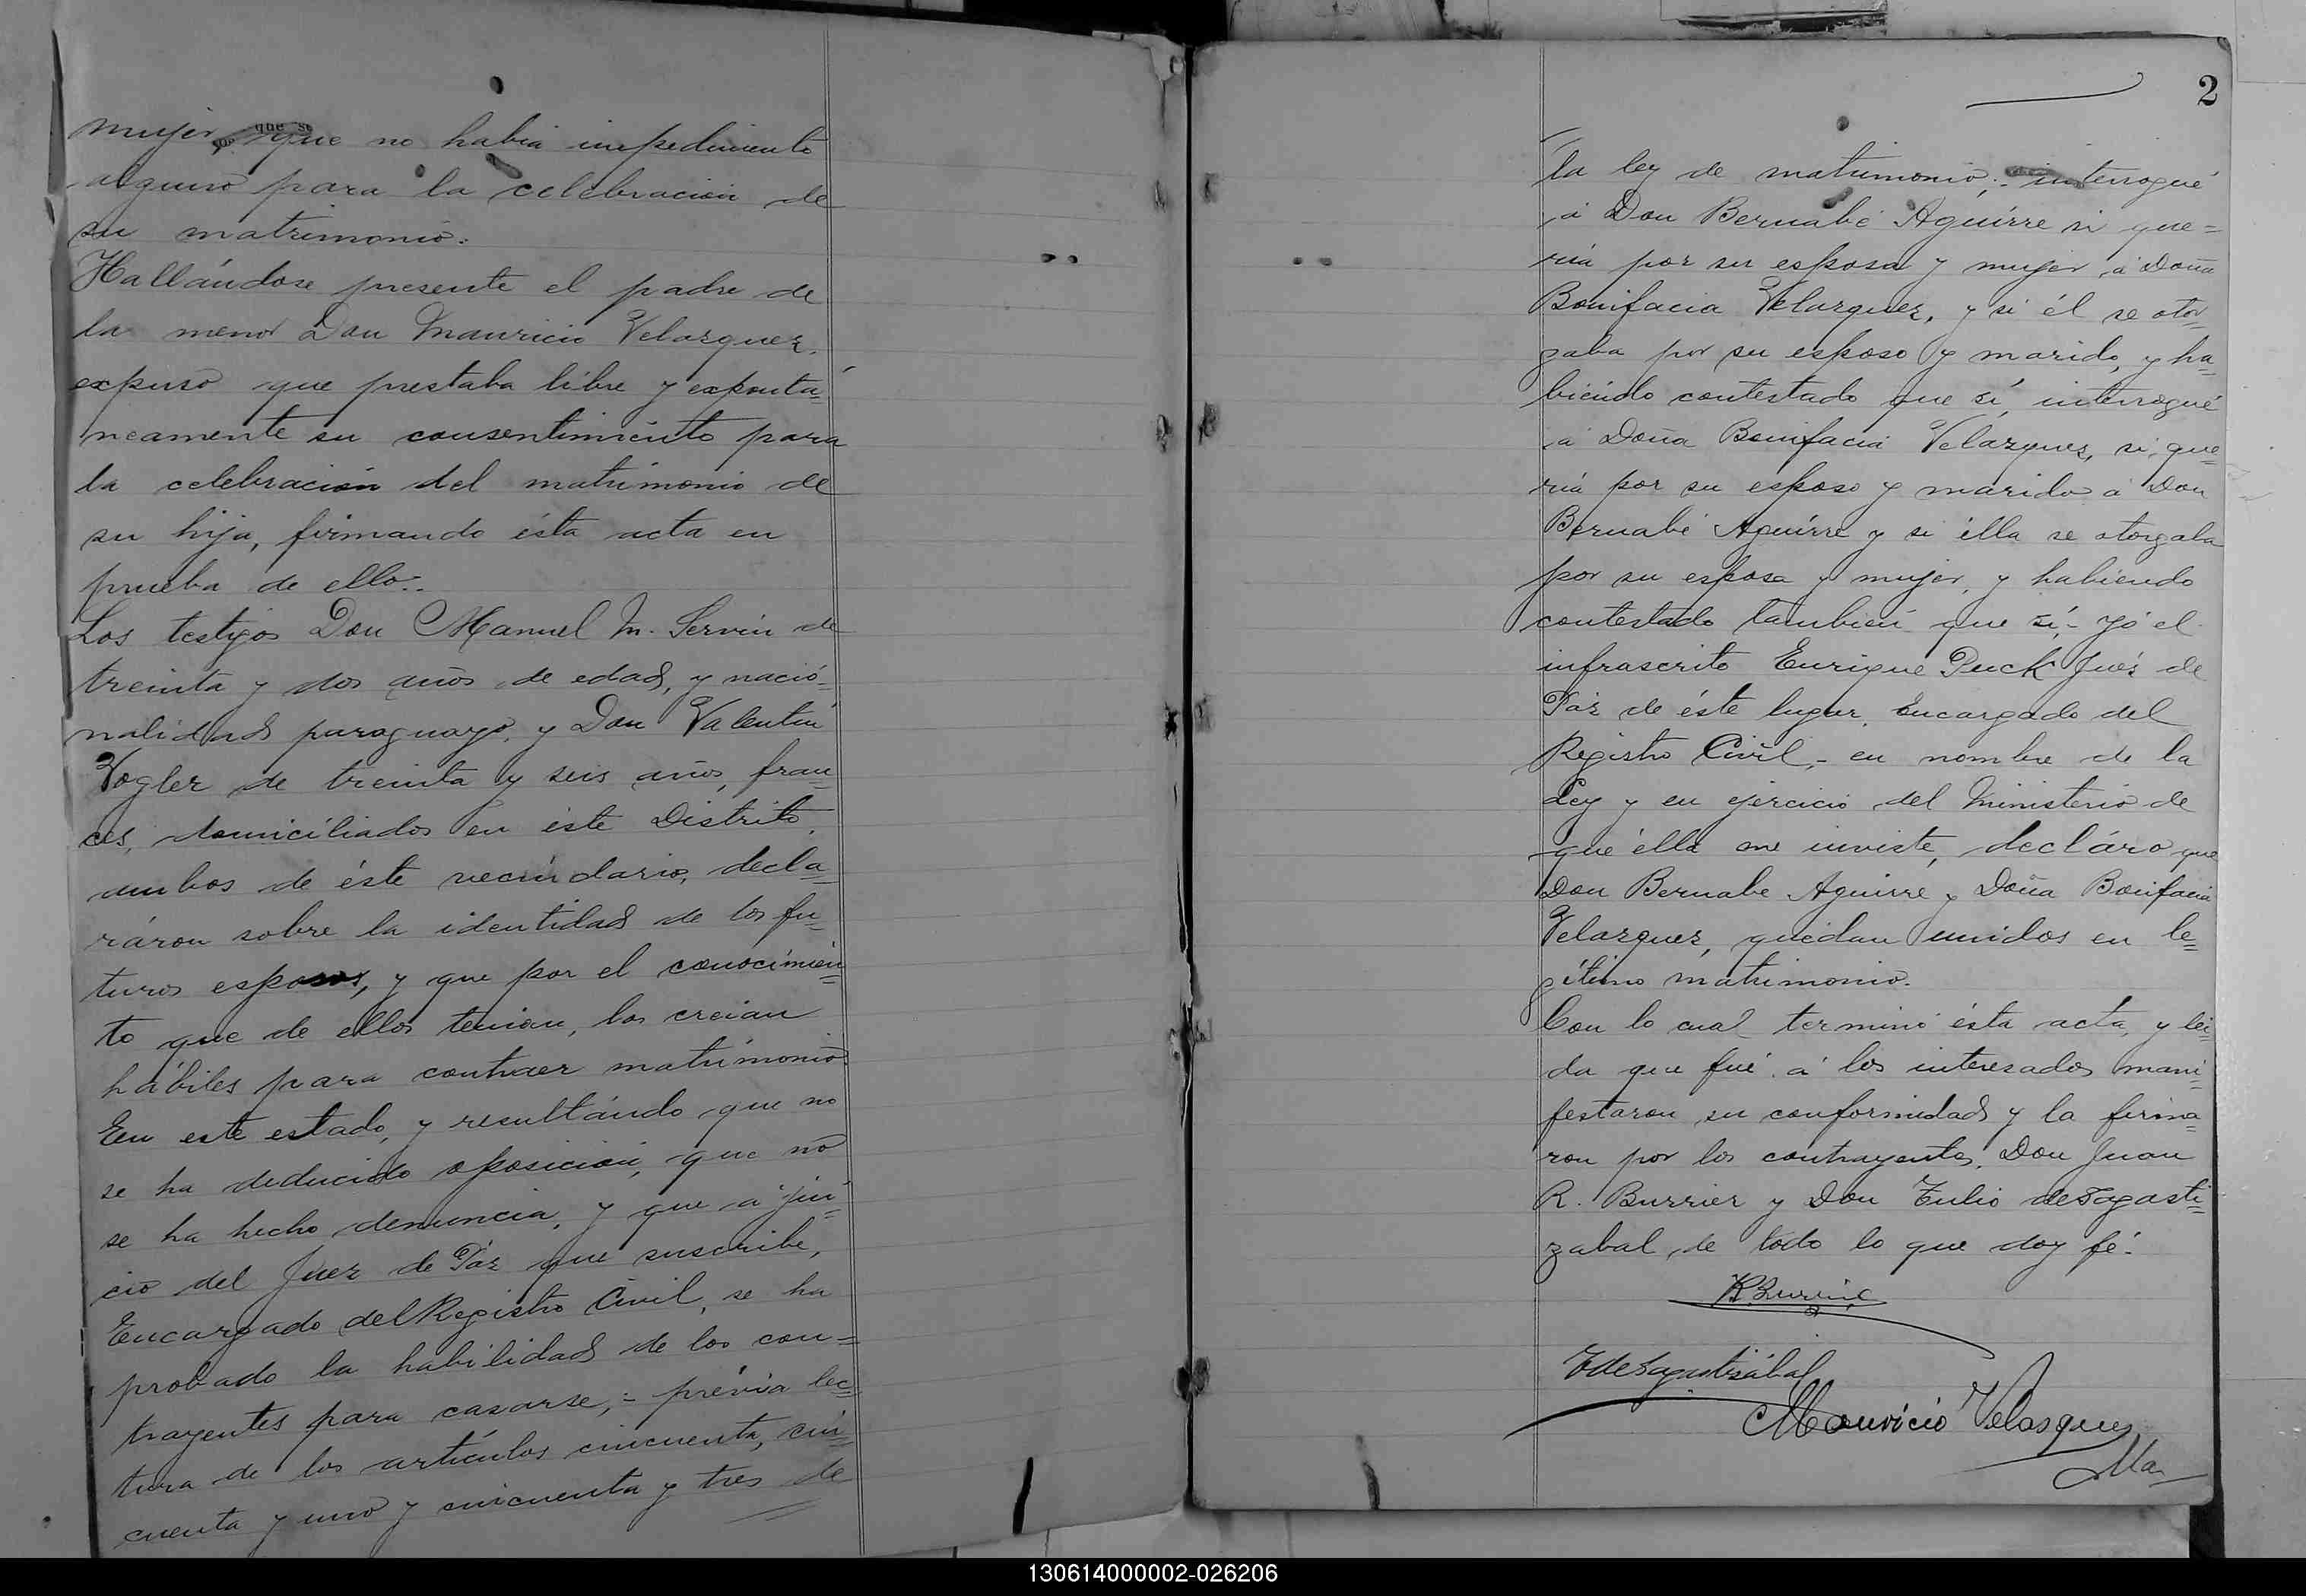 mujer, que no habia impedimento
alguno para la celebracion de
su matrimonio.
Hallándose presente el padre de
la menor Don Mauricio Velazquez,
expuso que prestaba libre y expontá=
neamente su consentimiento para
la celebracion del matrimonio de
su hija, firmando ésta acta en
prueba de ello.
Los testigos Don Manuel M. Servin de
treinta y dos años de edad, y nacio=
nalidad paraguayo, y Don Valentin
Vogler de treinta y seis años, fran=
ces, domiciliados en éste Distrito,
ambos de éste vecindario, decla=
ráron sobre la identidad de los fu=
turos esposos, y que por el conocimien=
to que de ellos tenian, los creian
hábiles para contraer matrimonio.
En este estado, y resultándo que no
se ha deducido oposicion, que no
se ha hecho denuncia, y que a jui=
cio del Juez de Páz que suscribe,
Encargado del Registro Civil, se ha
probado la habilidad de los con=
trayentes para casarse,- prévia lec=
tura de los articulos cincuenta, cin=
cuenta y uno y cincuenta y tres de
2
la ley de matrimonio;- interrogué
á Don Bernabé Aguirre si que=
ria por su esposa y mujer á Doña
Bonifacia Velazquez, y si él se otor=
gaba por su esposo y marido, y ha=
biéndo contestado que sí, interrogué
á Doña Bonifacia Velazquez, si que=
ria por su esposo y marido á Don
Bernabé Aguirre y si élla se otorgaba
por su esposa y mujer, y habiendo
contestado tambien que sí,- yó el
infrascrito Enrique Puck Juéz de
Páz de éste lugar, Encargado del
Registro Civil,- en nombre de la
Ley y en ejercicio del Ministerio de
que élla me inviste, decláro que
Don Bernabe Aguirre y Doña Bonifacia
Velazquez, quedan unidos en le=
gitimo matrimonio.
Con lo cual terminó ésta acta, y leí=
da que fué á los interesados mani=
festaron su conformidad y la firma=
ron por los contrayentes, Don Juan
R. Burrier y Don Tulio de Sagasti=
zabal, de todo lo que doy fé.
R. Burrier
T de Sagastizábal
Mauricio Velasques
Ma
130614000002-026206